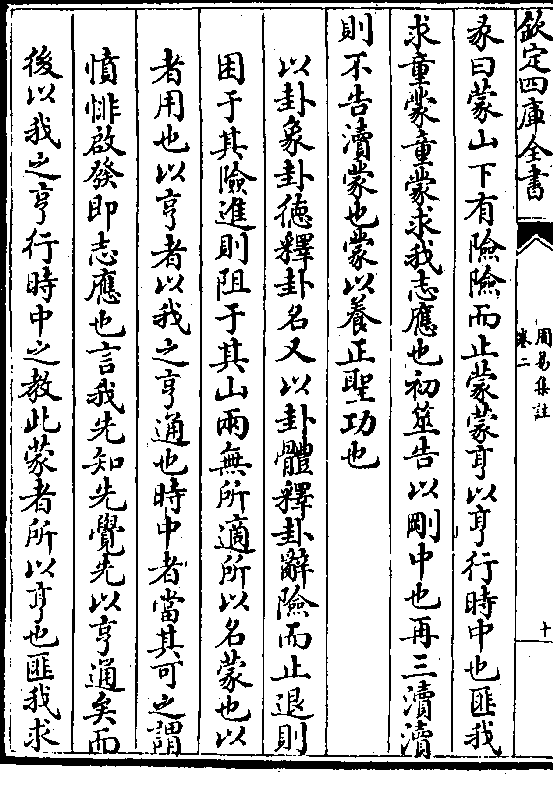 欽定四庫全書
周易集註
卷二
十
彖曰蒙山下有險險而止蒙蒙亨以亨行時中也匪我
求童蒙童蒙求我志應也初筮告以剛中也再三瀆瀆
則不告瀆蒙也蒙以養正聖功也
以卦象卦德釋卦名又以卦體釋卦辭險而止退則
困于其險進則阻于其山兩無所適所以名蒙也以
者用也以亨者以我之亨通也時中者當其可之謂
憤悱啟發即志應也言我先知先覺先以亨通矣而
後以我之亨行時中之教此蒙者所以亨也匪我求